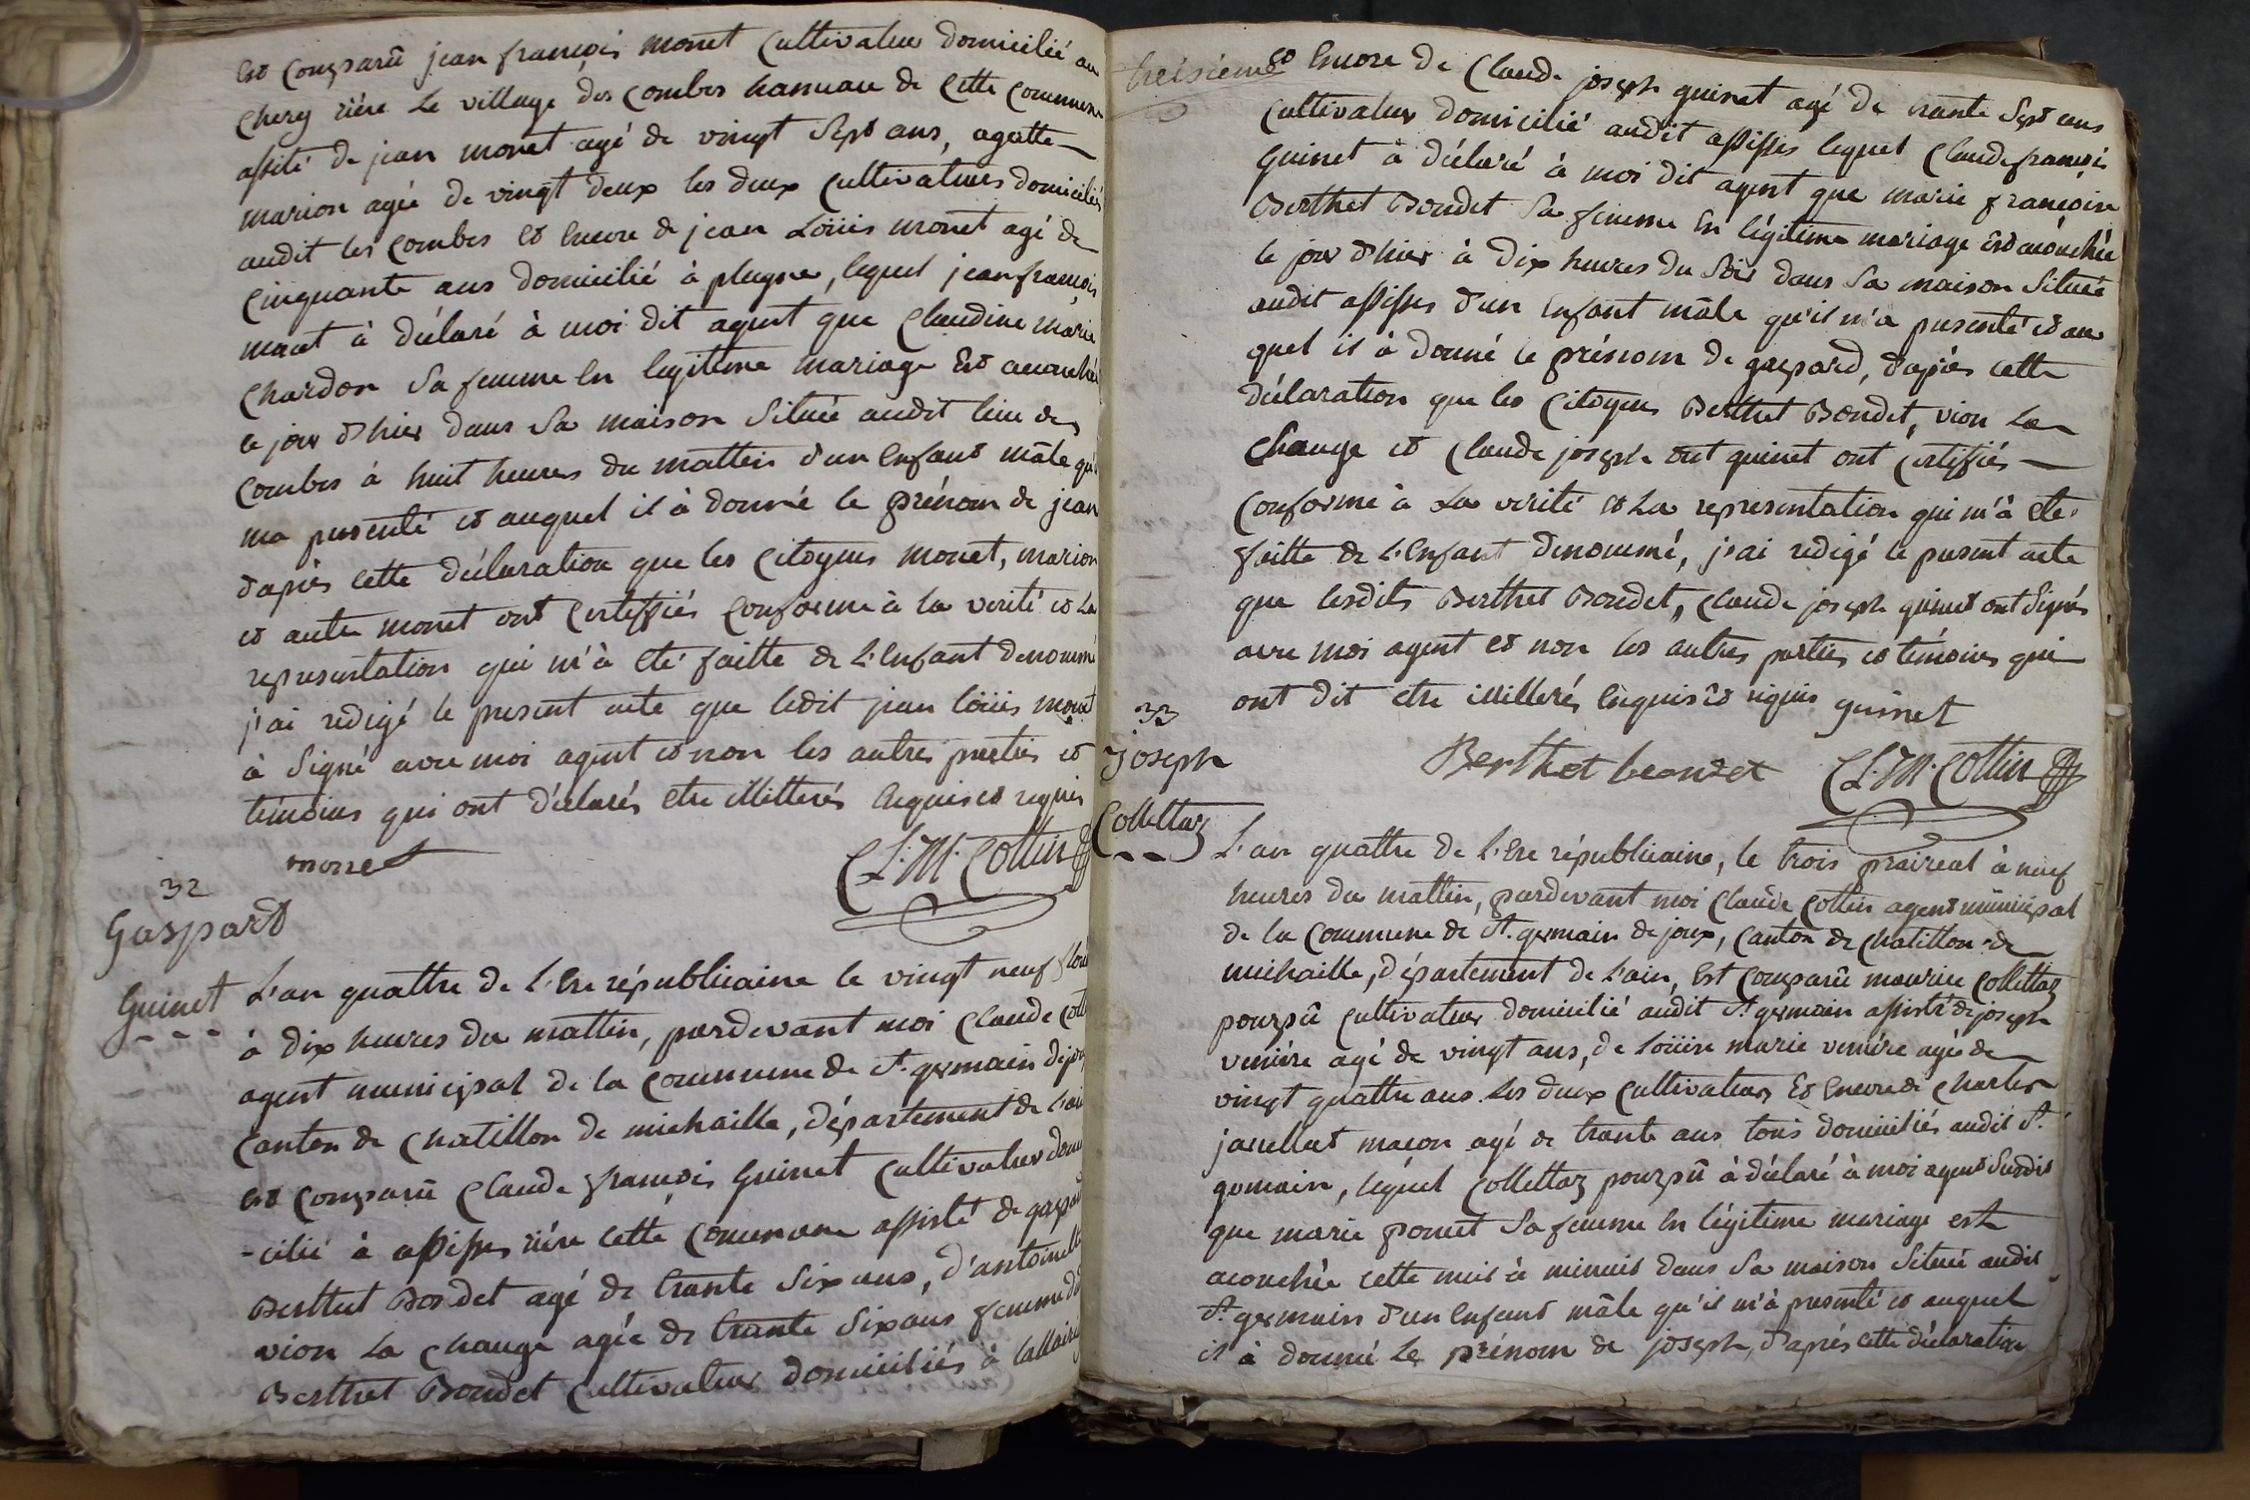 est comparû jean françois monet cultivateur domicilié au
chery riére le village des combes hamau de cette commune
assité de jean monet agé de vingt sept ans, agatte
marion agée de vingt deux les deux cultivateurs domiciliés
audit les combes et encore de jean Loüis monet agé de
cinquante ans domicilié à plagne, lequel jean françois
monet à déclaré à moi dit agent que claudine marie
chardon sa femme en legitime mariage est acouchée
le jour d'hier dans sa maison située audit lieu des
combes à huit heures du mattin d'un enfant mâle qu'il
ma presenté et auquel il à donné le prénom de jean
d'après cette déclaration que les citoyens monet, marion
et autre monet ont certiffiés conforme à la verité et La
representation qui m'à eté faitte de L'enfant denommé
j'ai redigé le present acte que ledit jean loüis monet
à signé avec moi agent et non les autres parties et
témoins qui ont déclarés etre illitterés enquis et requis
monet
CL. M. Collin
32
Gaspard
Guinet
L'an quattre de L'ere républicaine le vingt neuf
à dix heures du mattin, pardevant moi claude
agent municipal de la commune de St. germain
canton de chatillon de michaille, département de L'ain
est comparû claude françois Guinet cultivateur domi
-cilié à assises riére cette commune assisté de gaspard
Berthet Bondet agé de trante six ans, d'antoinette
vion La change agée de trante six ans femme du
Berthet Bondet cultivateur domiciliés à
treisieme
et encore de claude joseph guinet agé de trante sept ans
cultivateur domicilié audit assises lequel claude françois
Guinet à déclaré à moi dit agent que marie françoise
Berthet Bondet sa femme en légitime mariage est acouchée
le jour d'hier à dix heures du soir dans sa maison située
audit assises d'un enfant mâle qu'il m'a presenté et au
quel il à donné le prénom de gaspard, d'après cette
déclaration que les citoyens Berthet Bondet, vion La
change et claude joseph ont guinet ont certiffiés
conforme à La verité et La representation qui m'à eté
faitte de L'enfant denommé, j'ai redigé le present acte
que lesdits Berthet Bondet, claude joseph guinet ont signés
avec moi agent et non les autres parties et témoins qui
ont dit etre illitterés enquis et requis guinet
Berthet bondet CL. M. Collin
33
joseph
Collettaz
L'an quattre de L'ere républicaine, le trois praireal à neuf
heures du mattin, pardevant moi claude Collin agent municipal
de la commune de St. germain de joux, canton de chatillon de
michaille, département de L'ain, est comparû maurice Collettaz
pourpû cultivateur domicilié audit St. germain assisté de joseph
veniére agé de vingt ans, de Loüise marie veniére agée de
vingt quattre ans les deux cultivateurs et encore de charles
javellot macon agé de trante ans tous domiciliés audit St.
germain, lequel Collettaz pourpû à déclaré à moi agent susdit
que marie poncet sa femme en légitime mariage est
acouchée cette nuit à minuit dans sa maison située audit
St. germain d'un enfant mâle qu'il m'à presenté et auquel
il à donné Le prénom de joseph, d'après cette déclaration